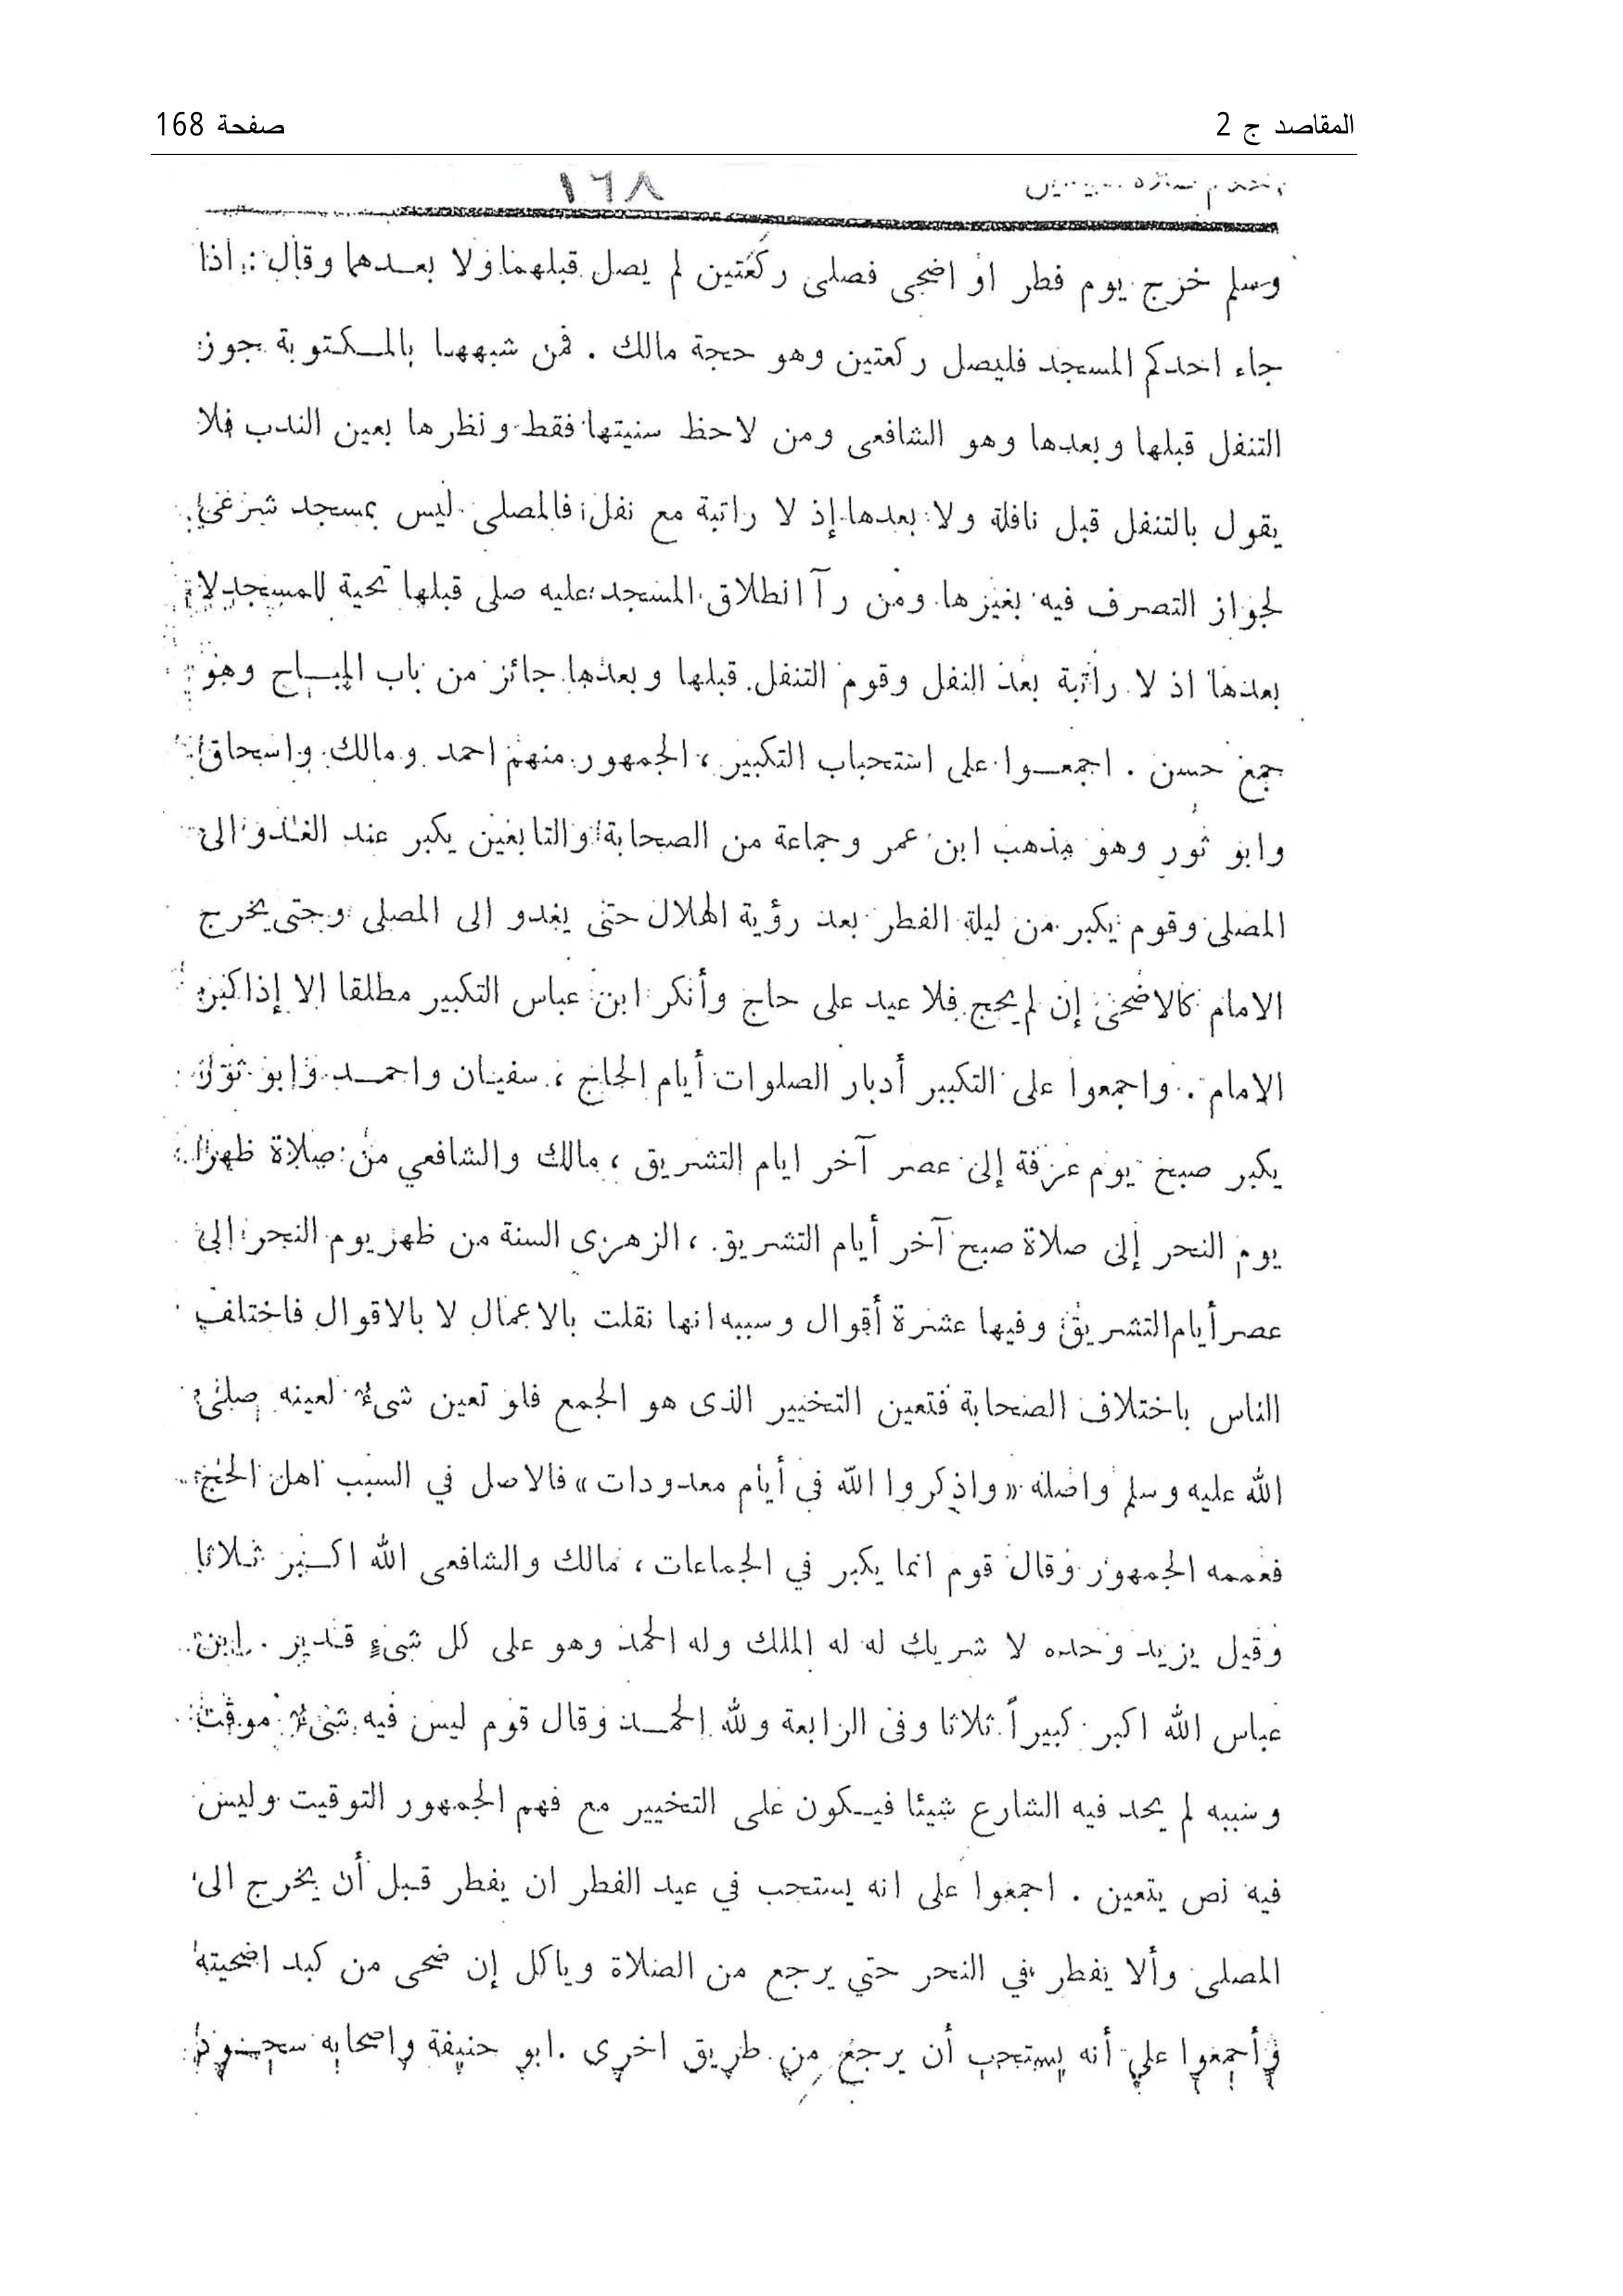 المقاصد ج 2
صفحة 168
١٦٨
وسلم خرج يوم فطر او اضحى فصلى ركعتين لم يصل قبلهما ولا بعدهما وقال : اذا
جاء احدكم المسجد فليصل ركعتين وهو حجة مالك . فمن شبهها بالمكتوبة جوز
التنفل قبلها وبعدها وهو الشافعى ومن لاحظ سنيتها فقط ونظرها بعين الندب فلا
يقول بالتنفل قبل نافلة ولا بعدها إذ لا راتبة مع نفل فالمصلى ليس بمسجد شرعى
لجواز التصرف فيه بغيرها ومن رآ انطلاق المسجد عليه صلى قبلها تحية للمسجد لا
بعدها اذ لا راتبة بعد النفل وقوم التنفل قبلها وبعدها جائز من باب المباح وهو
جمع حسن . اجمعوا على استحباب التكبير ، الجمهور منهم احمد ومالك واسحاق
وابو ثور وهو مذهب ابن عمر وجماعة من الصحابة والتابعين يكبر عند الغدو الى
المصلى وقوم يكبر من ليلة الفطر بعد رؤية الهلال حتى يغدو الى المصلى وحتى يخرج
الامام كالاضحى إن لم يحج فلا عيد على حاج وأنكر ابن عباس التكبير مطلقا إلا إذا كبر
الامام . واجمعوا على التكبير أدبار الصلوات أيام الحاج ، سفيان واحمد وابو ثور
يكبر صبح يوم عرفة إلى عصر آخر ايام التشريق ، مالك والشافعي من صلاة ظهر
يوم النحر إلى صلاة صبح آخر أيام التشريق ، الزهرى السنة من ظهر يوم النحر إلى
عصر أيام التشريق وفيها عشرة أقوال وسببه انها نقلت بالاعمال لا بالاقوال فاختلف
الناس باختلاف الصحابة فتعين التخيير الذى هو الجمع فلو تعين شىء لعينه صلى
الله عليه وسلم واصله «واذكروا الله فى أيام معدودات» فالاصل في السبب اهل الحج
فعممه الجمهور وقال قوم انما يكبر في الجماعات ، مالك والشافعى الله اكبر ثلاثا
وقيل يزيد وحده لا شريك له له الملك وله الحمد وهو على كل شىء قدير . ابن
عباس الله اكبر كبيراً ثلاثا وفى الرابعة ولله الحمد وقال قوم ليس فيه شىء موقت
وسببه لم يحد فيه الشارع شيئا فيكون على التخيير مع فهم الجمهور التوقيت وليس
فيه نص يتعين . اجمعوا على انه يستحب في عيد الفطر ان يفطر قبل أن يخرج الى
المصلى وألا يفطر في النحر حتي يرجع من الصلاة وياكل إن ضحى من كبد اضحيته
وأجمعوا على أنه يستحب أن يرجع من طريق اخرى . ابو حنيفة واصحابه سجود